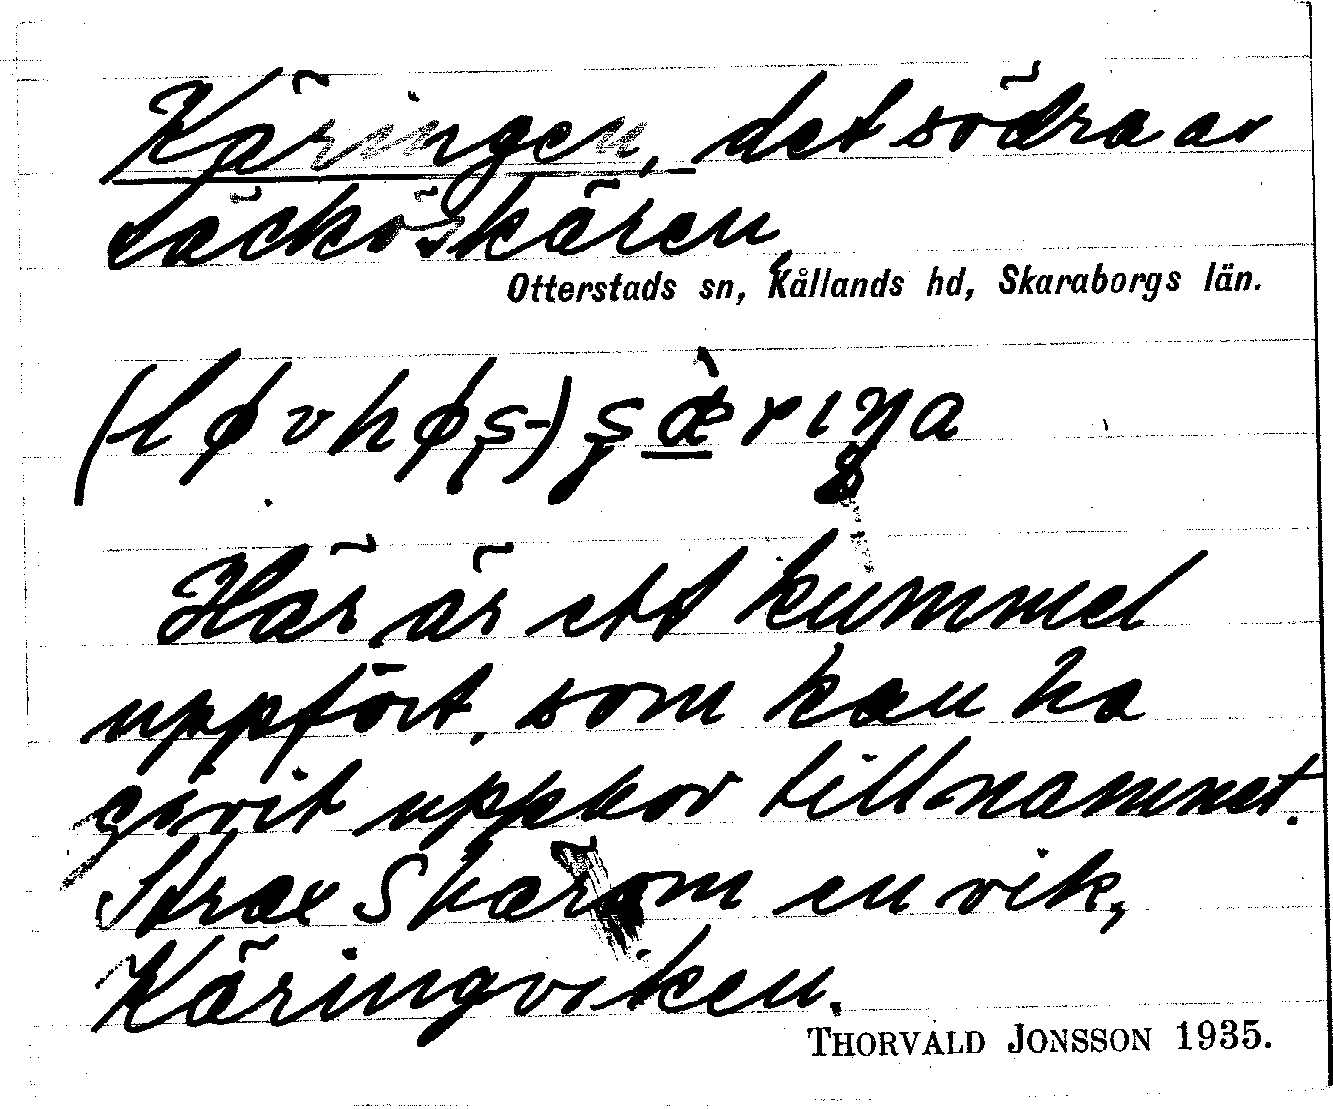 Käringen, det södra av
Läcköskären
Otterstads sn, Kållands hd, Skaraborgs län.
Här är ett kummel
uppfört, som kan ha
givit upphov till namnet.
Strax S härom en vik,
Käringviken.
THORVALD JONSSON 1935.